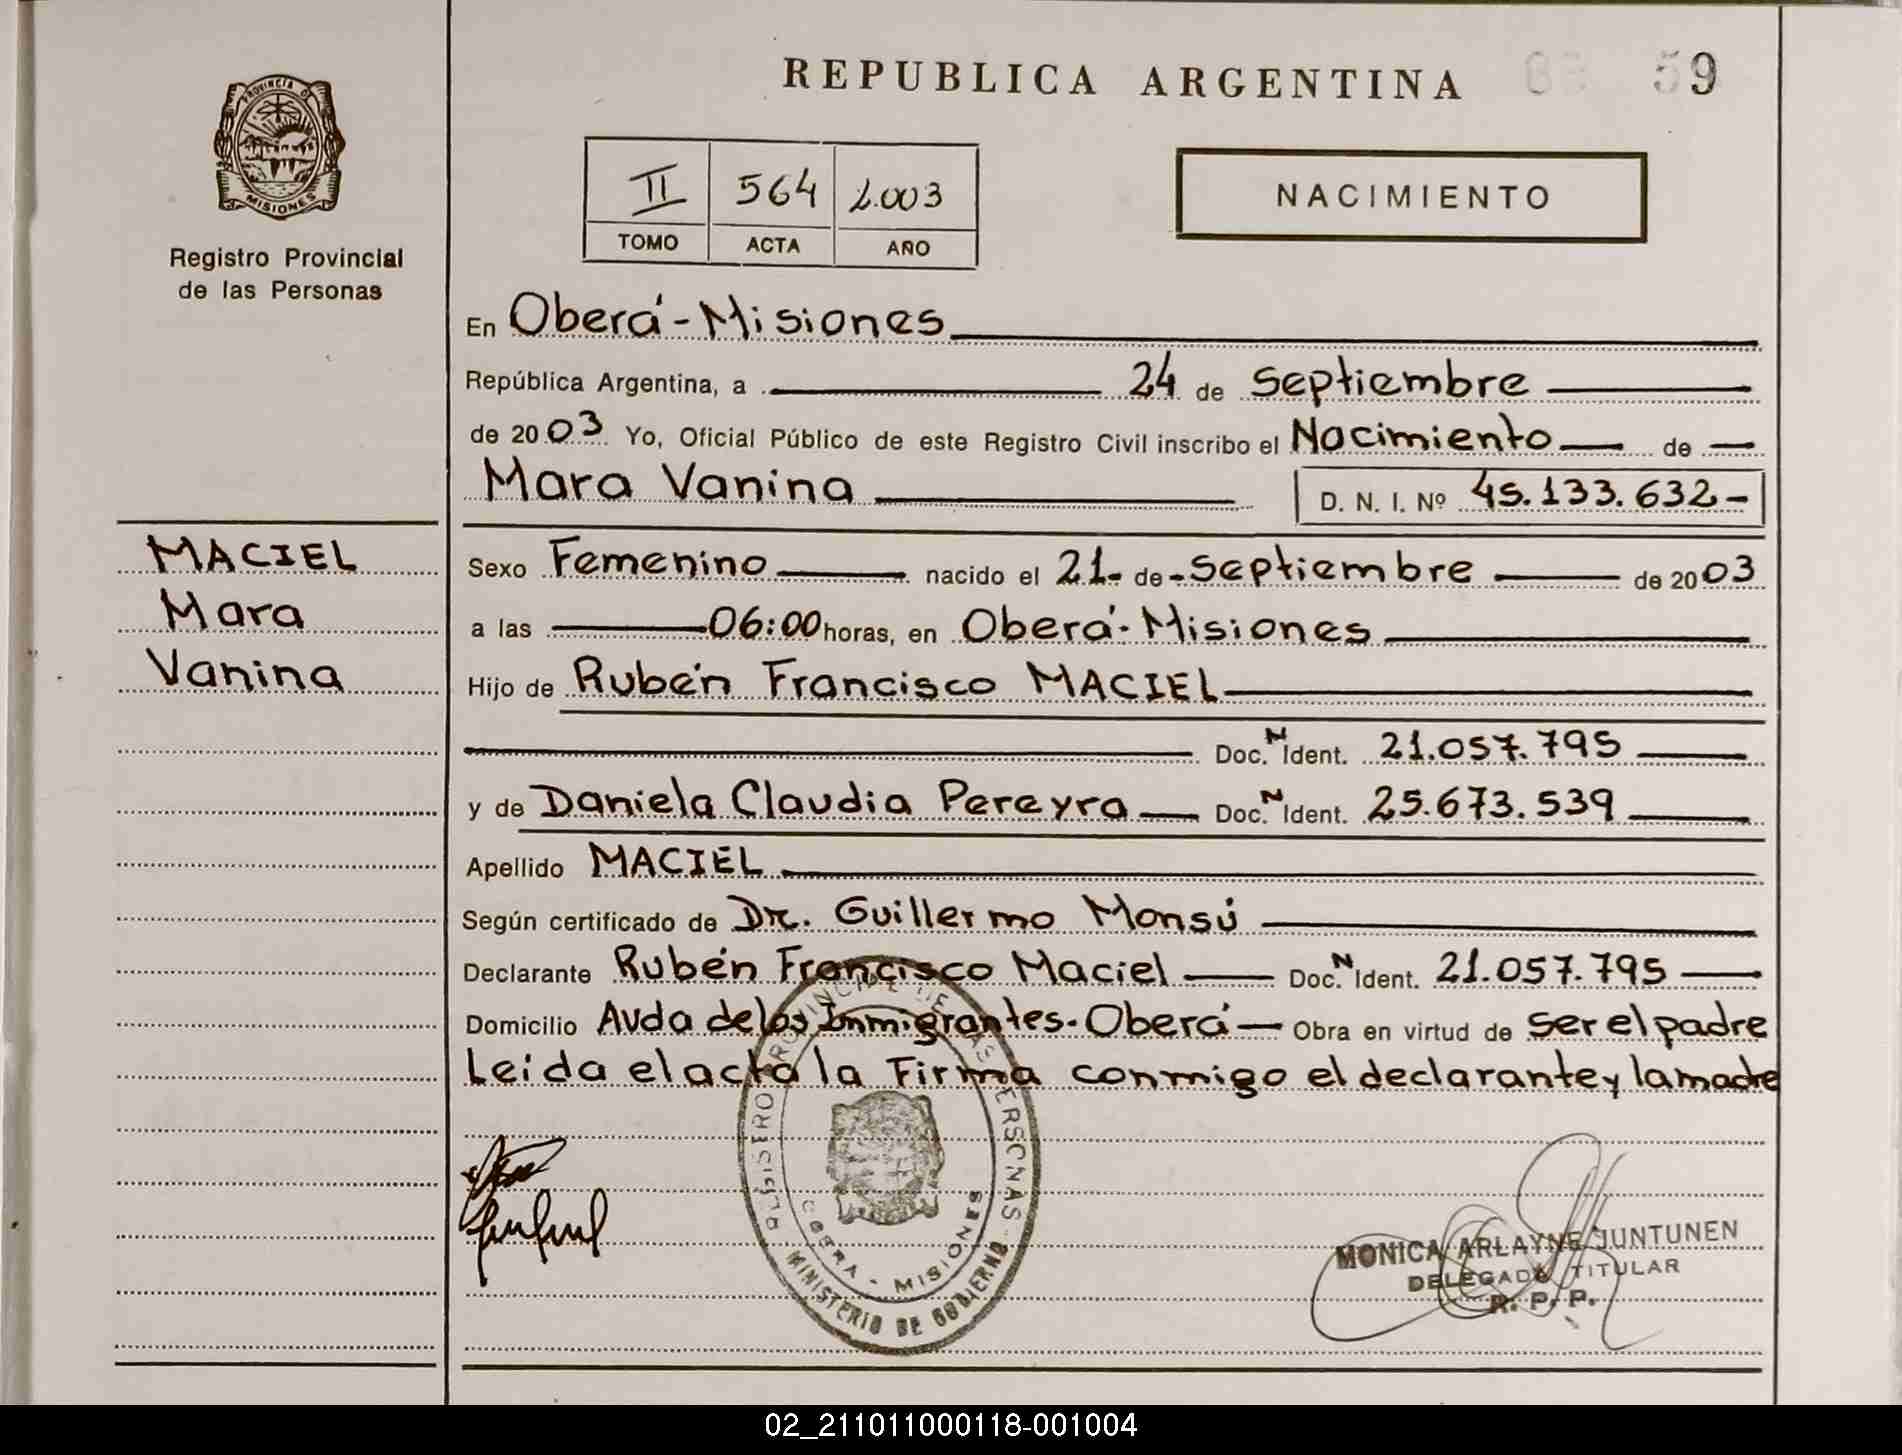 REPUBLICA ARGENTINA 59
PROVINCIA D MISIONES
Registro Provincial
de las Personas
II 564 2.003
TOMO ACTA AÑO
NACIMIENTO
En Oberá-Misiones
República Argentina, a 24 de Septiembre
de 2003 Yo, Oficial Público de este Registro Civil inscribo el Nacimiento de
Mara Vanina D. N. I. Nº 45.133.632-
MACIEL
Mara
Vanina
Sexo Femenino nacido el 21- de - Septiembre de 2003
a las 06:00 horas, en Oberá-Misiones
Hijo de Rubén Francisco MACIEL
Doc. N Ident. 21.057.795
y de Daniela Claudia Pereyra Doc. N Ident. 25.673.539
Apellido MACIEL
Según certificado de Dr. Guillermo Monsú
Declarante Rubén Francisco Maciel Doc. N Ident. 21.057.795
Domicilio Avda de los Inmigrantes-Oberá Obra en virtud de ser el padre
Leída el acta la Firma conmigo el declarante y la madre
REGISTRO PROVINCIAL DE LAS PERSONAS
OBERA - MISIONES
MINISTERIO DE GOBIERNO
MONICA ARLAYNE JUNTUNEN
DELEGADA TITULAR
R. P. P.
02_211011000118-001004